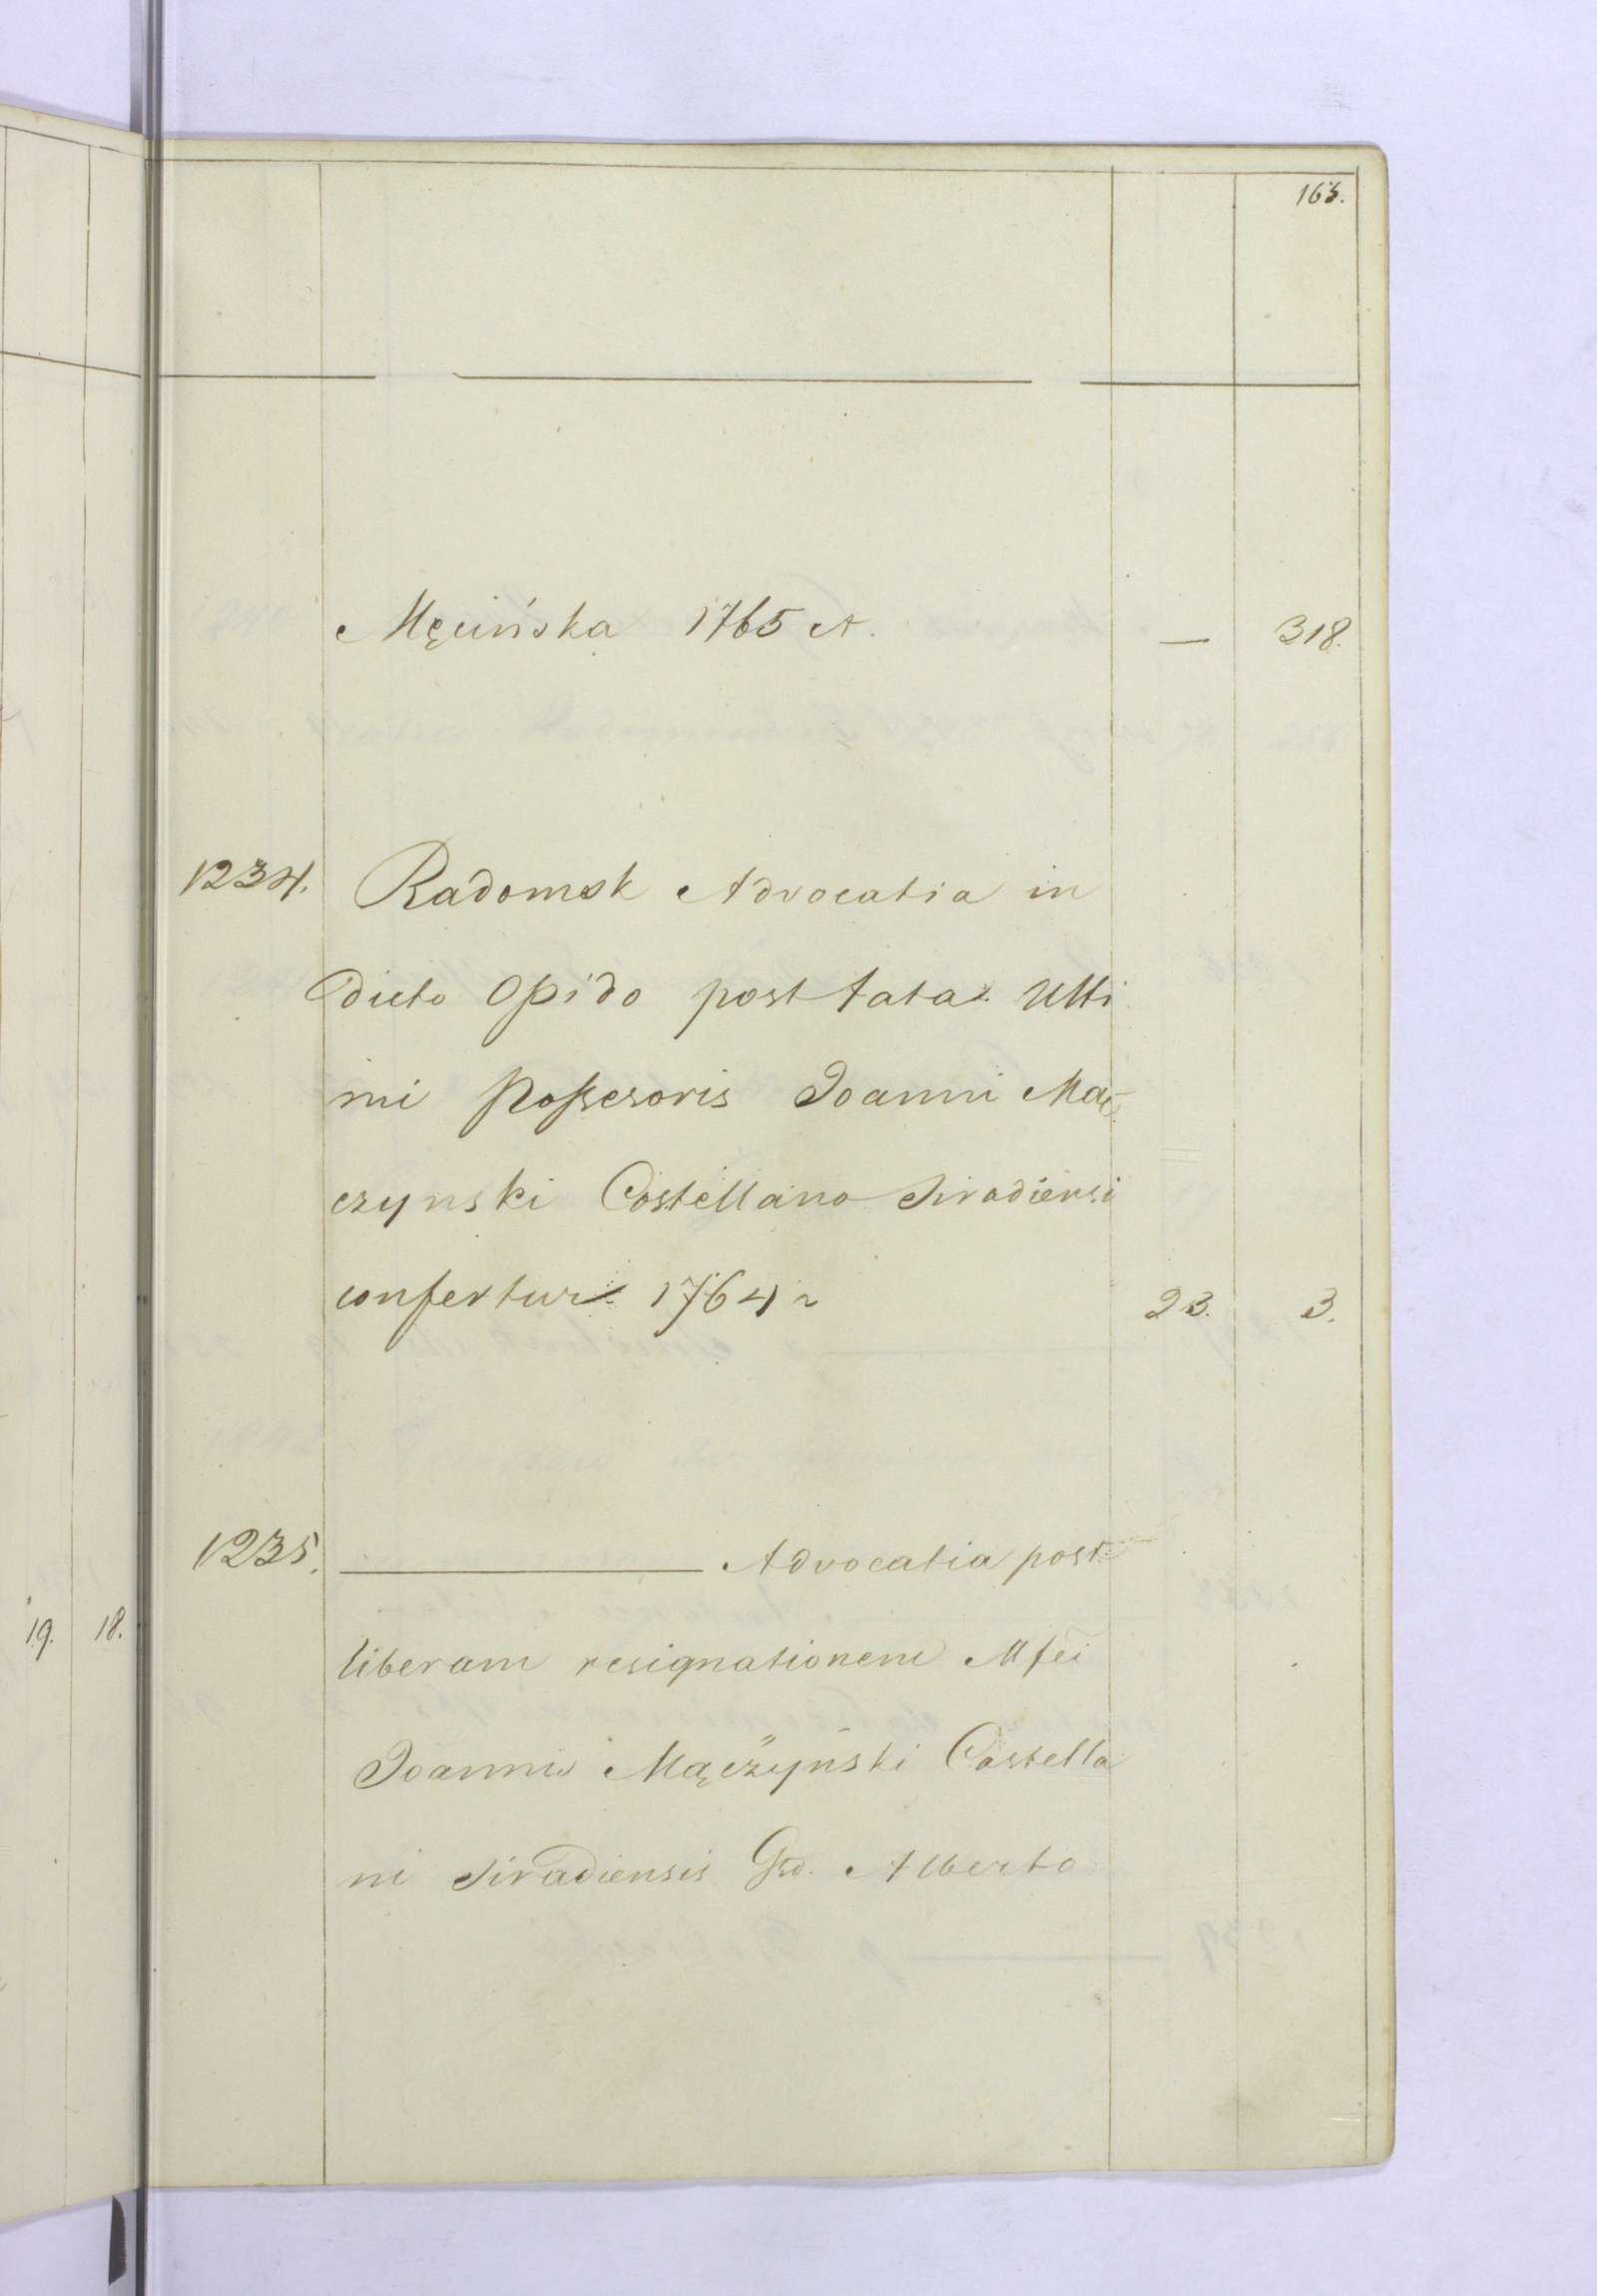 163.
Męcińska 1765 A. — 318.
1234. Radomsk Advocatia in
dicto Opido post fata Ulti
mi Possesoris Joanni Mą
czynski Castellano Siradiensi
confertur 1764 23. 3.
1235. ——— Advocatia post
liberam resignationem Mfci
Joannis Mączyński Castella
ni Siradiensis Gso. Alberto
19. 18.